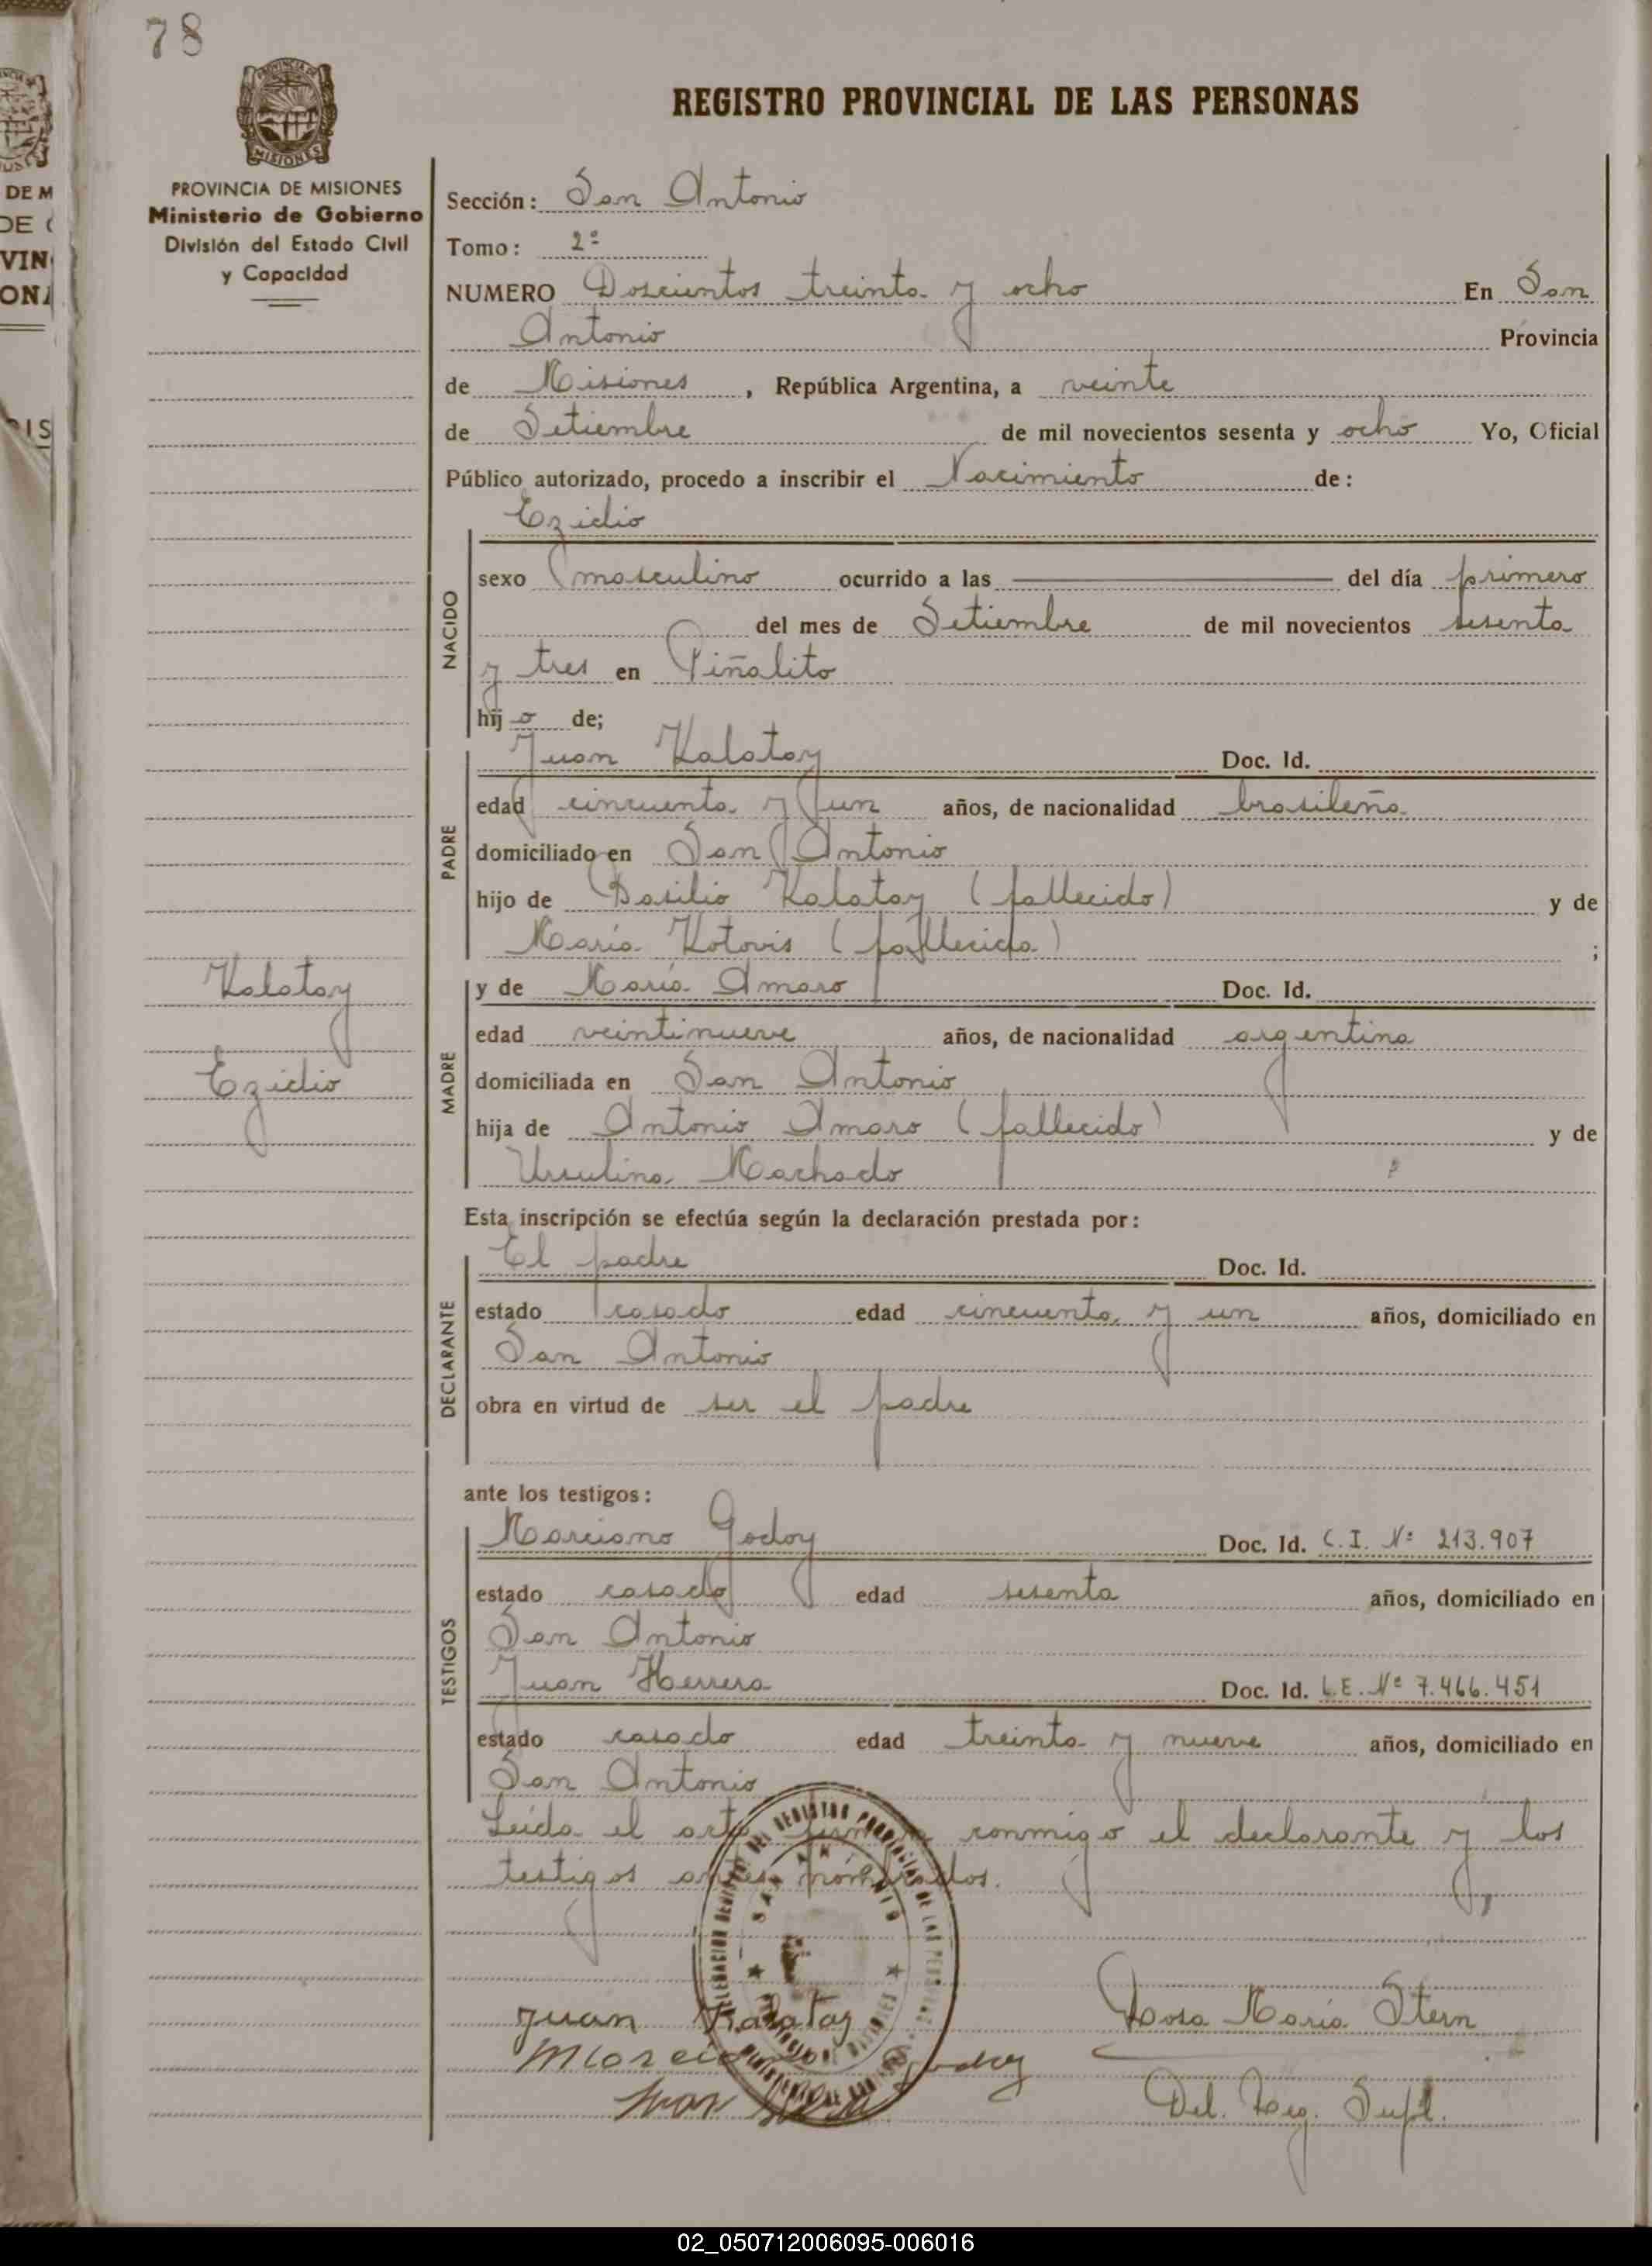 78
REGISTRO PROVINCIAL DE LAS PERSONAS
PROVINCIA DE MISIONES
Ministerio de Gobierno
División del Estado Civil
y Capacidad
Sección: San Antonio
Tomo: 2º
NUMERO Doscientos treinta y ocho En San
Antonio Provincia
de Misiones, República Argentina, a veinte
de Setiembre de mil novecientos sesenta y ocho Yo, Oficial
Público autorizado, procedo a inscribir el Nacimiento de:
Ezidio
NACIDO
sexo masculino ocurrido a las ——— del día primero
del mes de Setiembre de mil novecientos sesenta
y tres en Piñalito
hijo de;
PADRE
Juan Kalatay Doc. Id.
edad cincuenta y un años, de nacionalidad brasileña
domiciliado en San Antonio
hijo de Basilio Kalatay (fallecido) y de
María Kotovis (fallecida) ;
Kalatay
Ezidio
MADRE
y de María Amaro Doc. Id.
edad veintinueve años, de nacionalidad argentina
domiciliada en San Antonio
hija de Antonio Amaro (fallecido) y de
Ursulina Machado
Esta inscripción se efectúa según la declaración prestada por:
DECLARANTE
El padre Doc. Id.
estado casado edad cincuenta y un años, domiciliado en
San Antonio
obra en virtud de ser el padre
ante los testigos:
TESTIGOS
Marciano Godoy Doc. Id. C.I. Nº 213.907
estado casado edad sesenta años, domiciliado en
San Antonio
Juan Herrera Doc. Id. L.E. Nº 7.466.451
estado casado edad treinta y nueve años, domiciliado en
San Antonio
Leída el acta firman conmigo el declarante y los
testigos antes nombrados.
Juan Kalatay
Rosa María Stern
Marciano Godoy
Del. Reg. Supl.
Juan
02_050712006095-006016